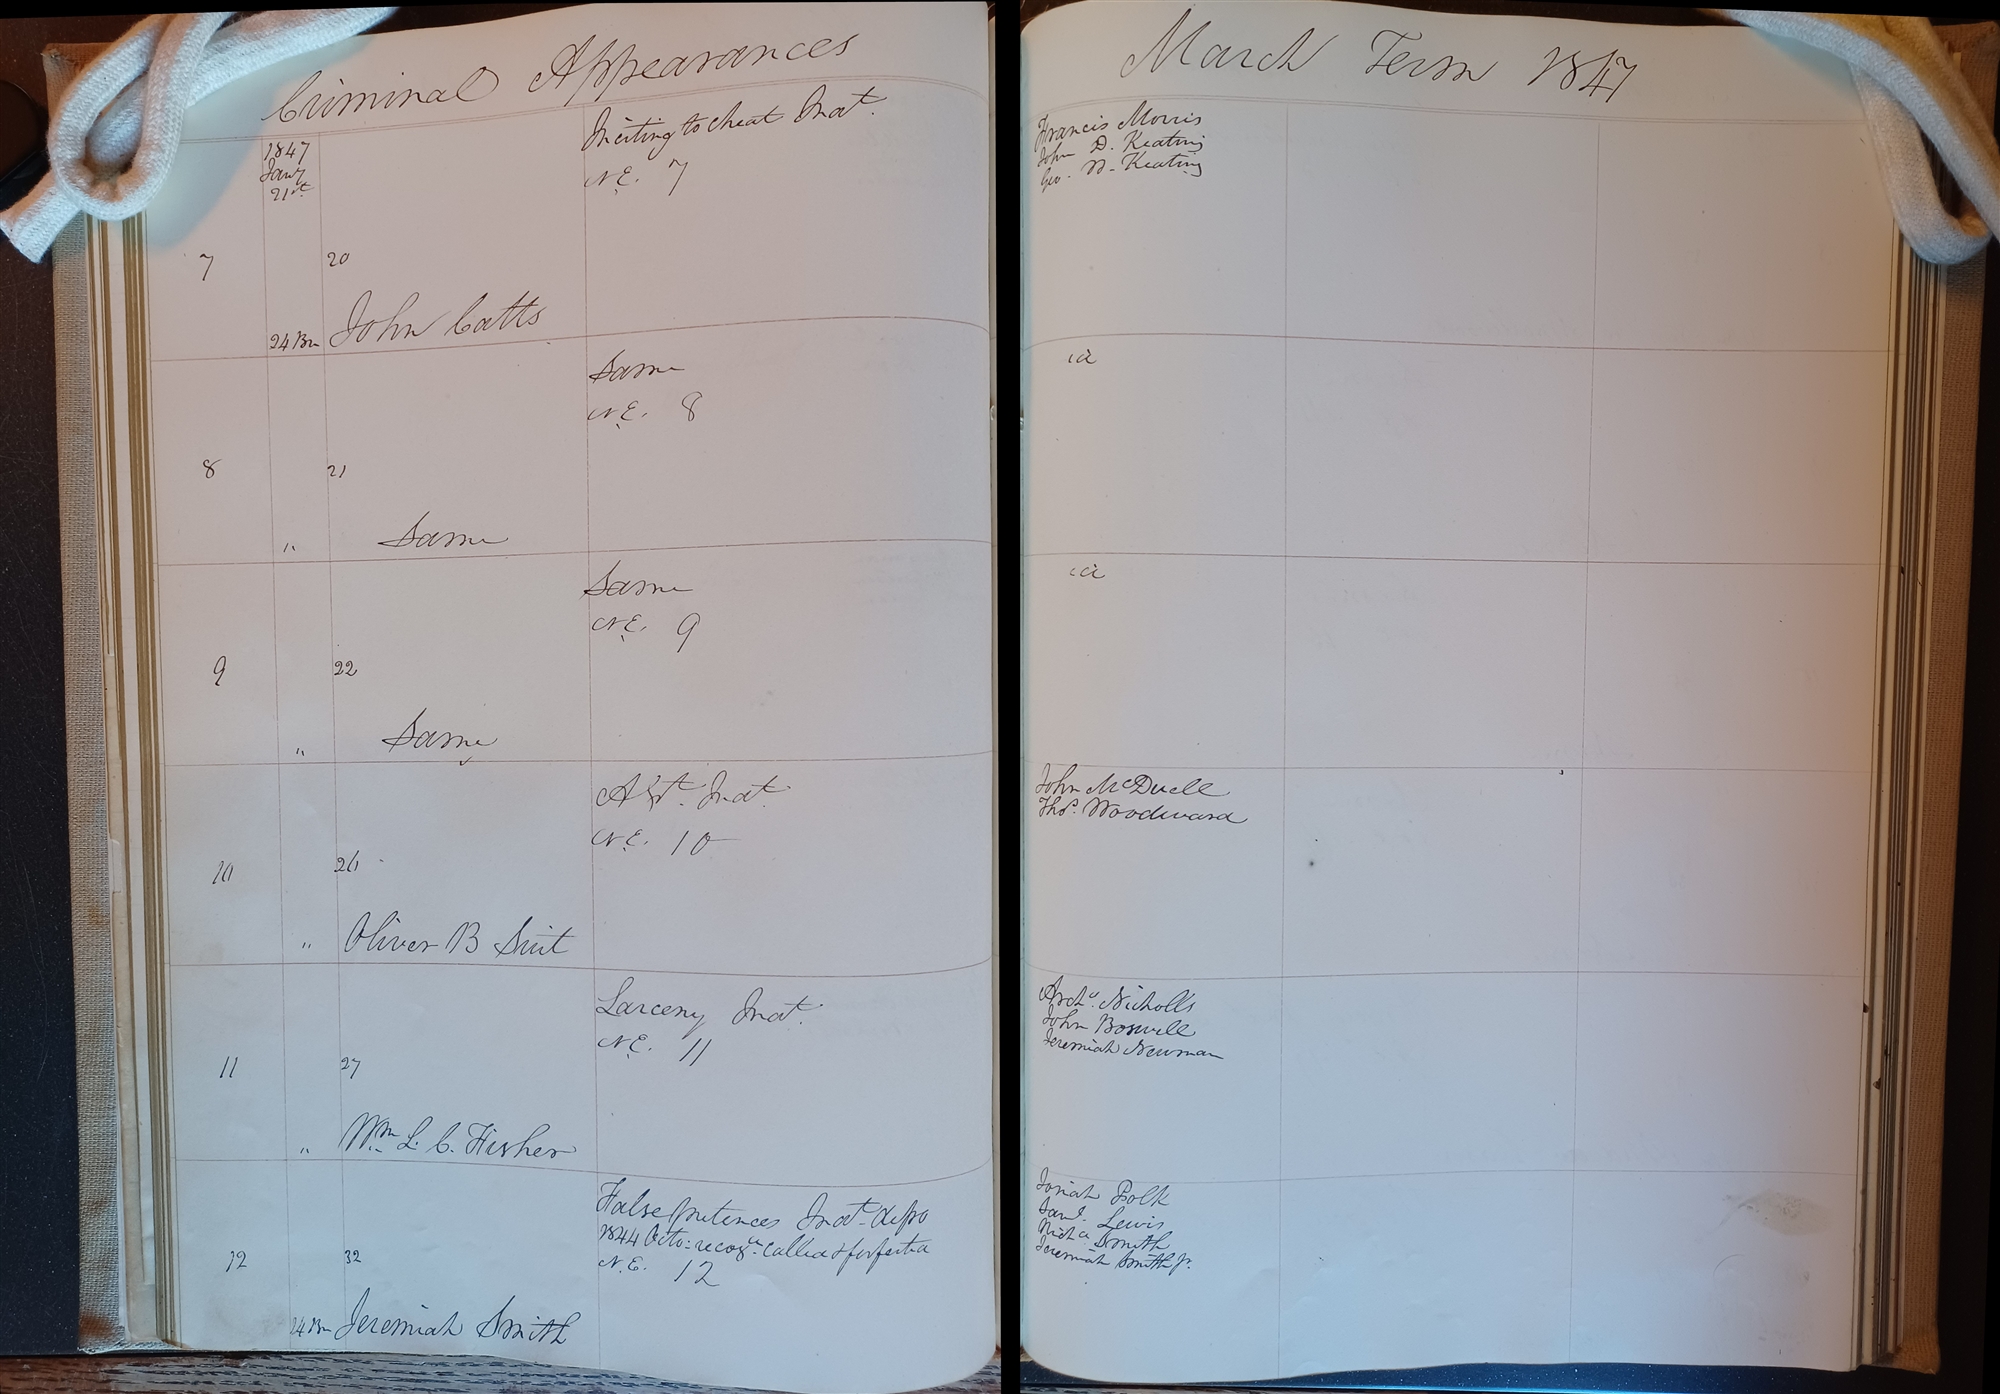 Criminal Appearances
1847
Jany
21st
Inciting to cheat Indt.
N.E. 7
7
20
24 Bn John Catts
Same
N.E. 8
8
21
" Same
Same
N.E. 9
9
22
" Same
A&Bt. Indt.
N.E. 10
10
26
" Oliver B Suit
Larceny Indt.
N.E. 11
11
27
" Wm. L. C. Fisher
False pretences Indt. depo
1844 Octo: recogce. called & forfeited
N.E. 12
12
32
24 Bn Jeremiah Smith
March Term 1847
Francis Morris
John D. Keating
Geo. W. Keating
"
"
John McDuell
Thos. Woodward
Archd. Nicholls
John Boswell
Jeremiah Newman
Josiah Polk
Saml. Lewis
Smith
Jeremiah Smith Jr.